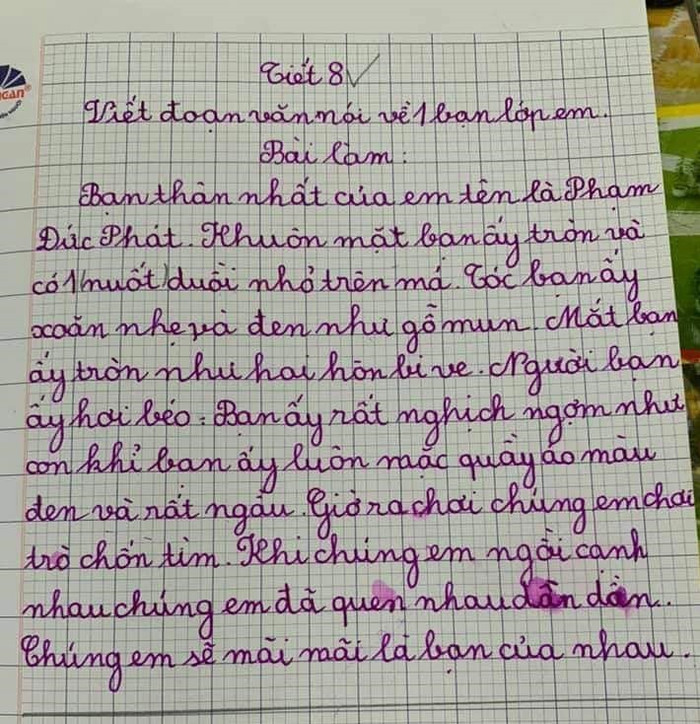 GAN®
Tiết 8
Viết đoạn văn nói về 1 bạn lớp em.
Bài làm:
Bạn thân nhất của em tên là Phạm
Đức Phát. Khuôn mặt bạn ấy tròn và
có 1 (nuốt) duồi nhỏ trên má. Tóc bạn ấy
xoăn nhẹ và đen như gỗ mun. Mắt bạn
ấy tròn như hai hòn bi ve. Người bạn
ấy hơi béo. Bạn ấy rất nghịch ngợm như
con khỉ bạn ấy luôn mặc quầy áo màu
đen và rất ngầu. Giờ ra chơi chúng em chơi
trò chốn tìm. Khi chúng em ngồi cạnh
nhau chúng em đã quen nhau dần dần.
Chúng em sẽ mãi mãi là bạn của nhau.